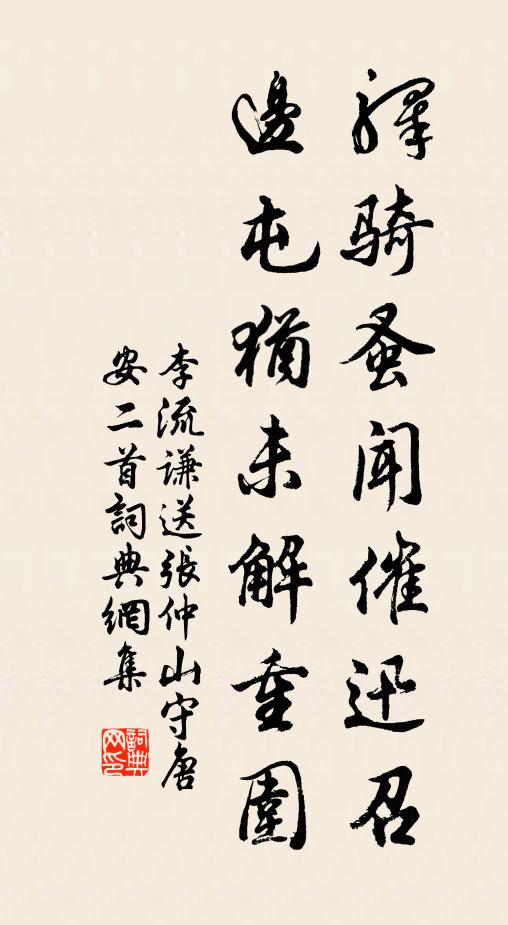 驛骑蚤闻催迅召
邊屯猶未解重圍
李流谦送張仲山守唐
安二首詞典網集
詞典
网印